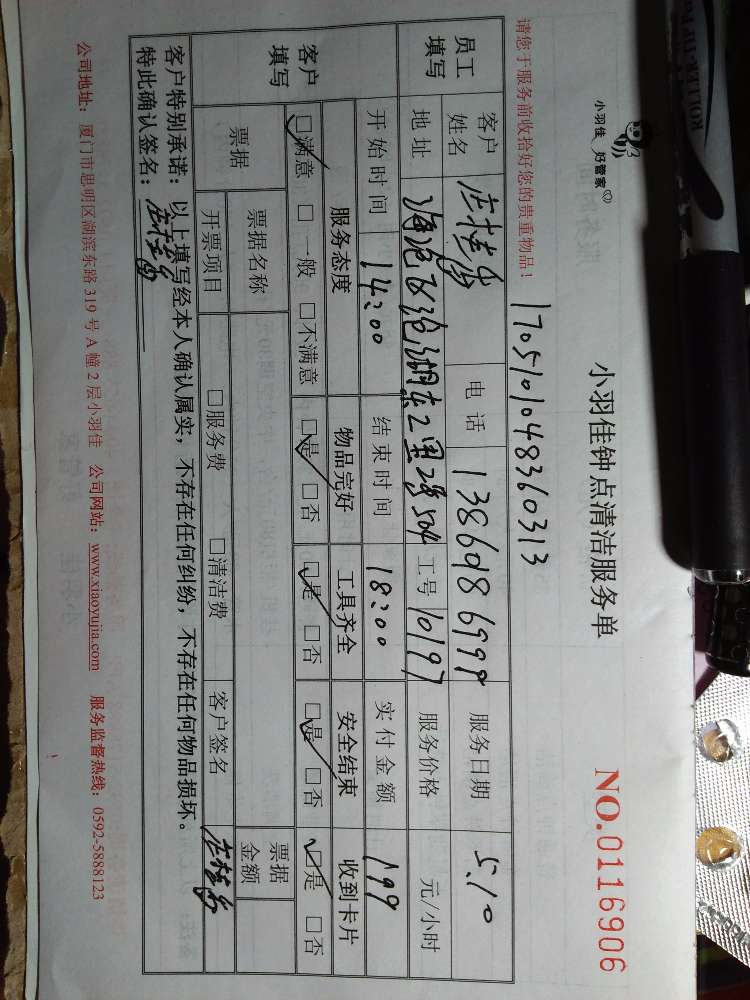 小羽佳 好管家
小羽佳钟点清洁服务单
NO.0116906
请您于服务前收拾好您的贵重物品!
1705101048360313
员工填写 客户姓名 庄桂香 电话 13860186999 服务日期 5.10
地址 海沧区沧湖东二里2号504 工号 10197 服务价格 元/小时
开始时间 14:00 结束时间 18:00 实付金额 199
客户填写 服务态度 物品完好 工具齐全 安全结束 收到卡片
☑满意 □一般 □不满意 ☑是 □否 ☑是 □否 ☑是 □否 ☑是 □否
票据 票据名称 票据金额
开票项目 □服务费 □清洁费 客户签名 庄桂香
客户特别承诺:以上填写经本人确认属实,不存在任何纠纷,不存在任何物品损坏。
特此确认签名:庄桂香
公司地址:厦门市思明区湖滨东路 319 号 A 幢 2 层小羽佳 公司网站:www.xiaoyujia.com 服务监督热线:0592-5888123